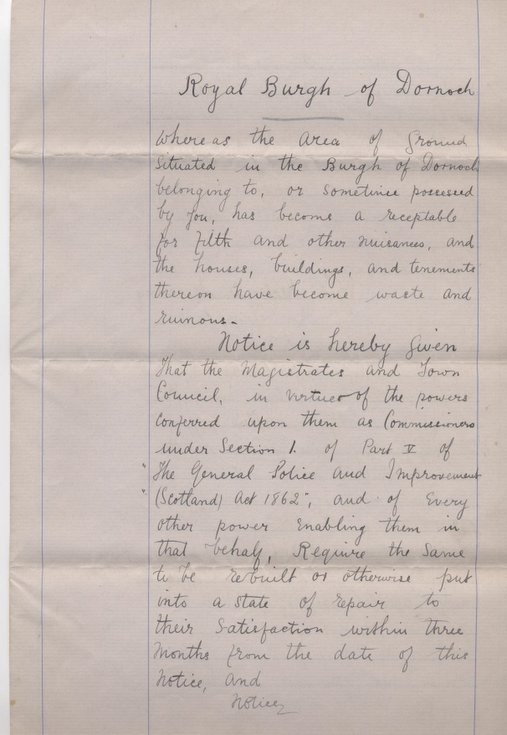 Royal Burgh of Dornoch
Whereas the area of ground
situated in the Burgh of Dornoch
belonging to, or sometime possessed
by you, has become a receptable
for filth and other nuisances, and
the houses, buildings, and tenements
thereon have become waste and
ruinous.-
Notice is hereby given
That the Magistrates and Town
Council, in virtue of the powers
conferred upon them as Commissioners
under Section 1. of Part V of
"The General Police and Improvement
"(Scotland) Act 1862", and of Every
other power Enabling them in
that behalf, Require the Same
to be rebuilt or otherwise put
into a state of repair to
their Satisfaction within three
Months from the date of this
Notice, and
Notice